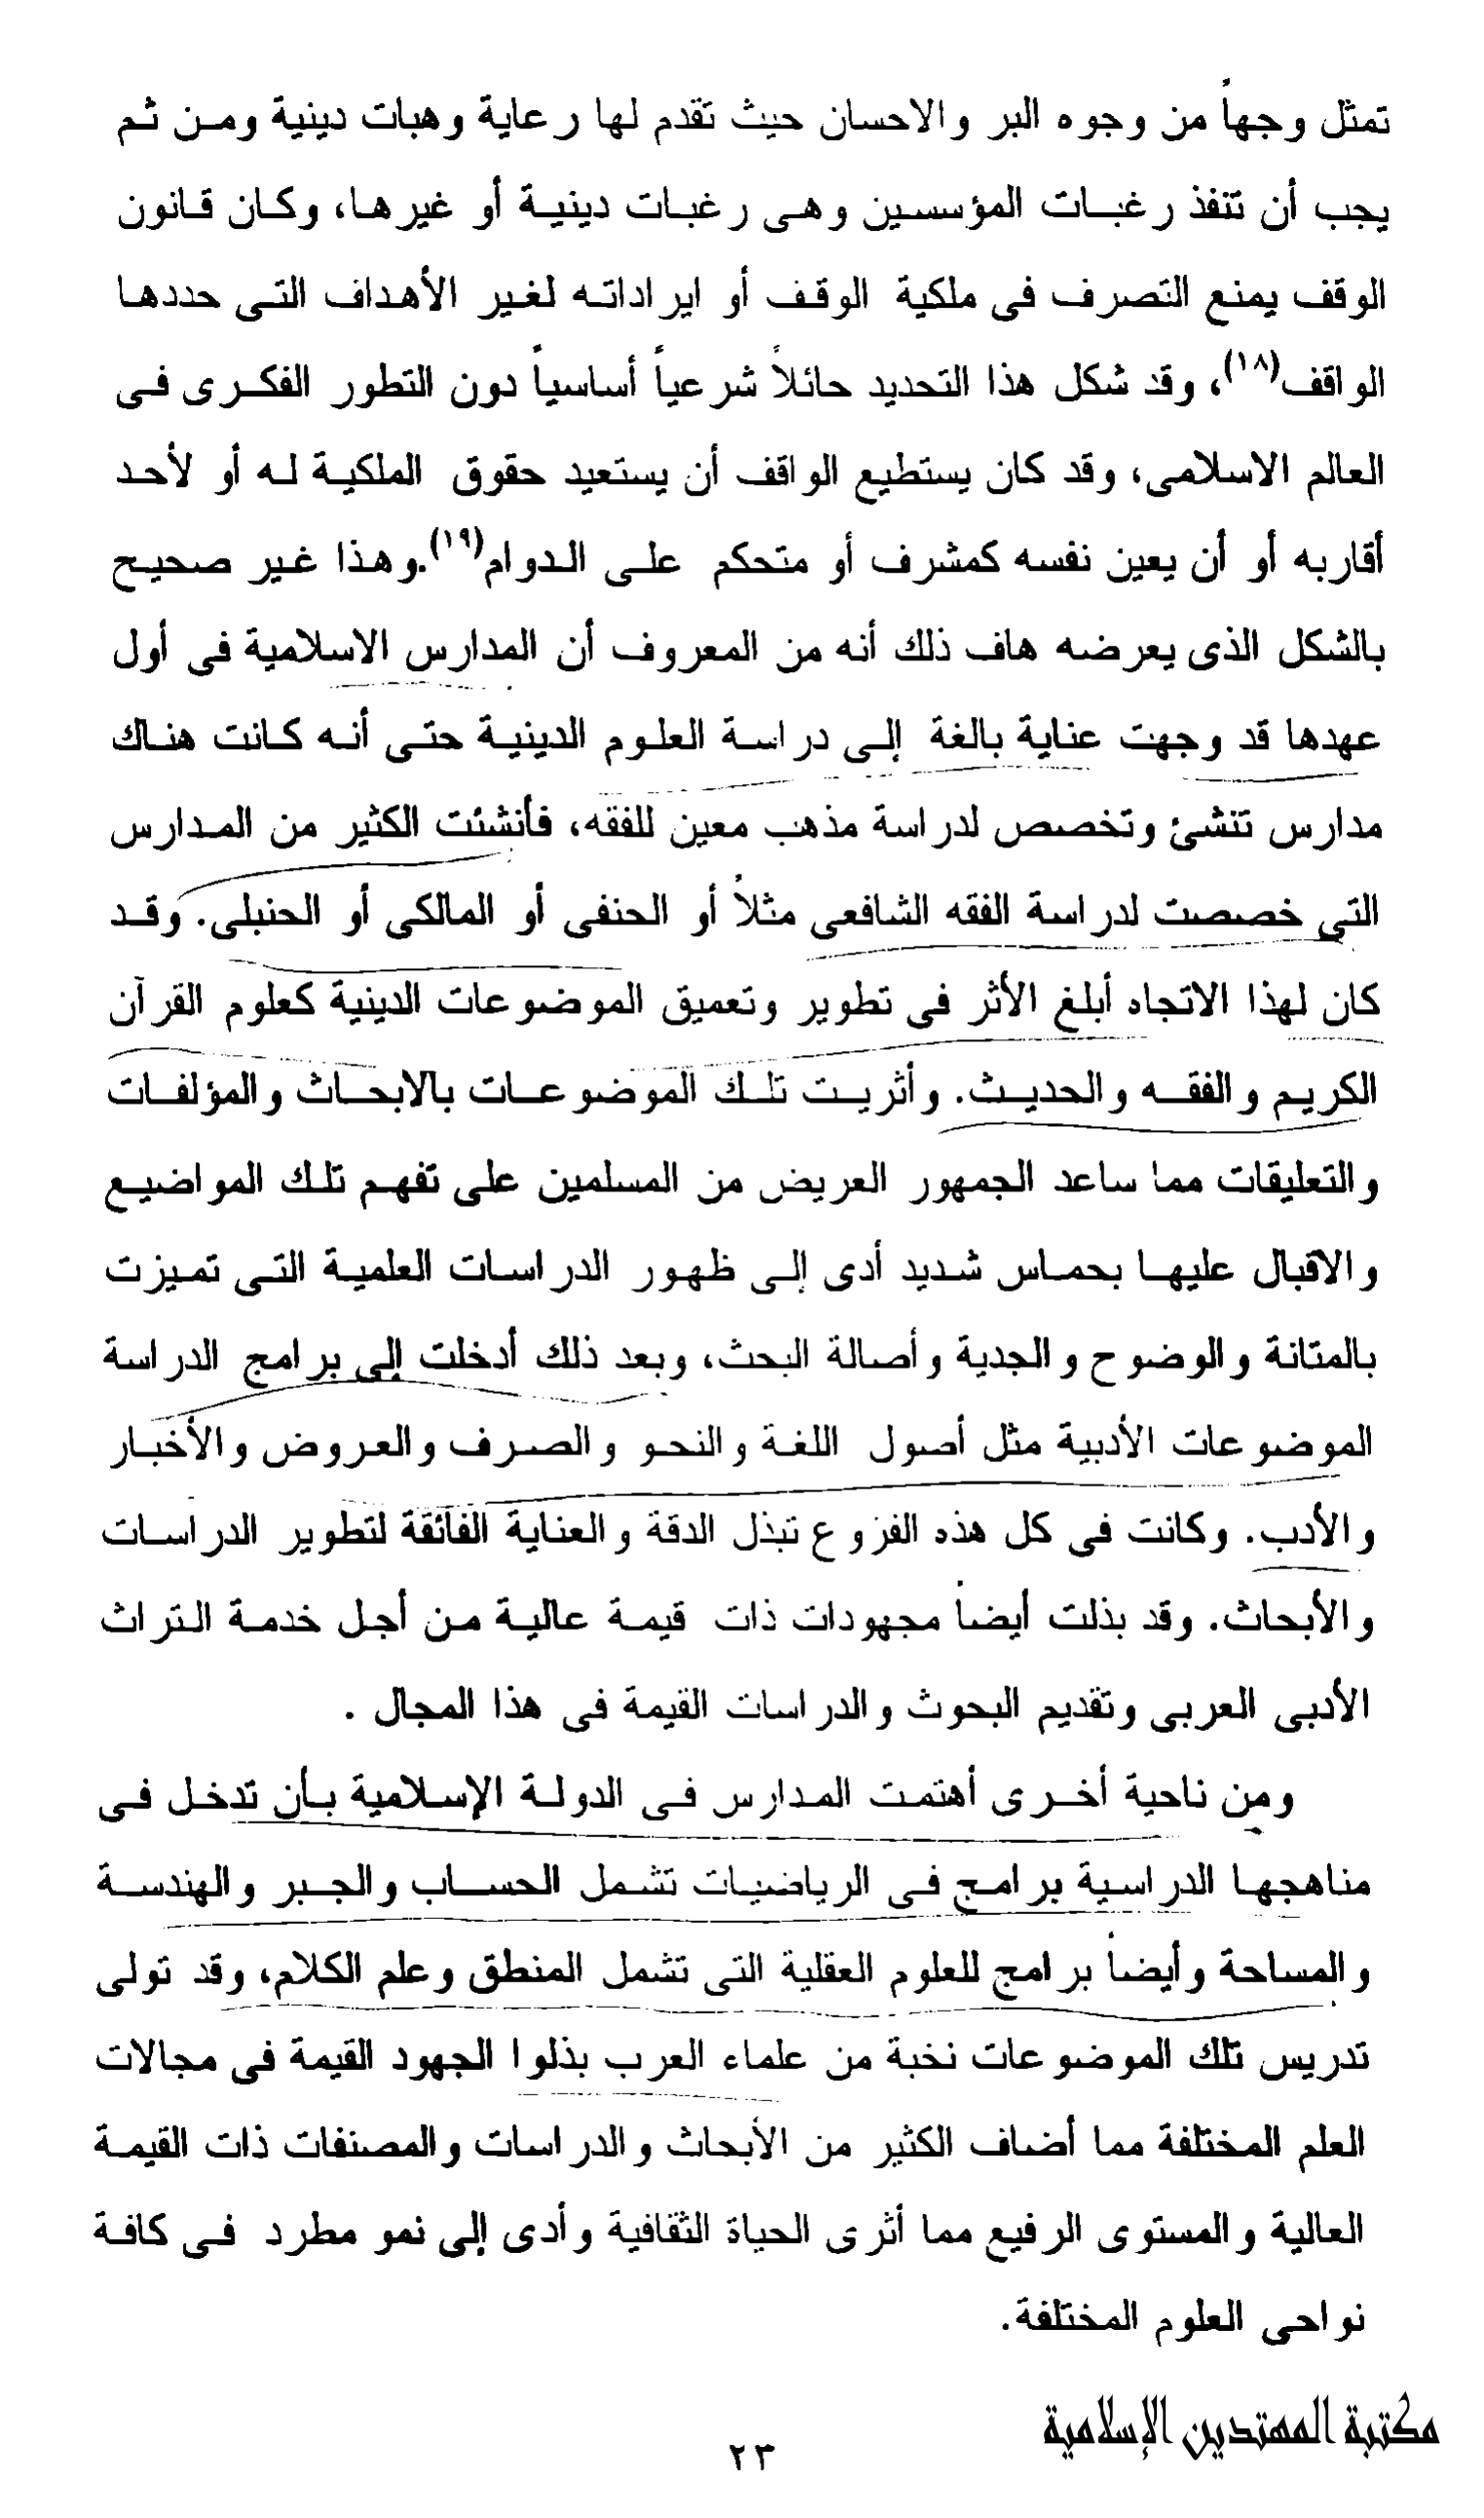 تمثل وجهاً من وجوه البر والاحسان حيث تقدم لها رعاية وهبات دينية ومن ثم
يجب أن تنفذ رغبات المؤسسين وهى رغبات دينية أو غيرها، وكان قانون
الوقف يمنع التصرف فى ملكية الوقف أو ايراداته لغير الأهداف التى حددها
الواقف(١٨)، وقد شكل هذا التحديد حائلاً شرعياً أساسياً دون التطور الفكرى فى
العالم الاسلامى، وقد كان يستطيع الواقف أن يستعيد حقوق الملكية له أو لأحد
أقاربه أو أن يعين نفسه كمشرف أو متحكم على الدوام(١٩).وهذا غير صحيح
بالشكل الذى يعرضه هاف ذلك أنه من المعروف أن المدارس الاسلامية فى أول
عهدها قد وجهت عناية بالغة إلى دراسة العلوم الدينية حتى أنه كانت هناك
مدارس تنشئ وتخصص لدراسة مذهب معين للفقه، فأنشئت الكثير من المدارس
التي خصصت لدراسة الفقه الشافعى مثلاً أو الحنفى أو المالكى أو الحنبلى. وقد
كان لهذا الاتجاه أبلغ الأثر فى تطوير وتعميق الموضوعات الدينية كعلوم القرآن
الكريم والفقه والحديث. وأثريت تلك الموضوعات بالابحاث والمؤلفات
والتعليقات مما ساعد الجمهور العريض من المسلمين على تفهم تلك المواضيع
والاقبال عليها بحماس شديد أدى إلى ظهور الدراسات العلمية التى تميزت
بالمتانة والوضوح والجدية وأصالة البحث، وبعد ذلك أدخلت إلى برامج الدراسة
الموضوعات الأدبية مثل أصول اللغة والنحو والصرف والعروض والأخبار
والأدب. وكانت فى كل هذه الفزوع تبذل الدقة والعناية الفائقة لتطوير الدراسات
والأبحاث. وقد بذلت أيضاً مجهودات ذات قيمة عالية من أجل خدمة التراث
الأدبى العربى وتقديم البحوث والدراسات القيمة فى هذا المجال .
ومن ناحية أخرى أهتمت المدارس فى الدولة الإسلامية بأن تدخل فى
مناهجها الدراسية برامج فى الرياضيات تشمل الحساب والجبر والهندسة
والمساحة وأيضاً برامج للعلوم العقلية التى تشمل المنطق وعلم الكلام، وقد تولى
تدريس تلك الموضوعات نخبة من علماء العرب بذلوا الجهود القيمة فى مجالات
العلم المختلفة مما أضاف الكثير من الأبحاث والدراسات والمصنفات ذات القيمة
العالية والمستوى الرفيع مما أثرى الحياة الثقافية وأدى إلى نمو مطرد فى كافة
نواحى العلوم المختلفة.
مكتبة المهتدين الإسلامية
٢٣